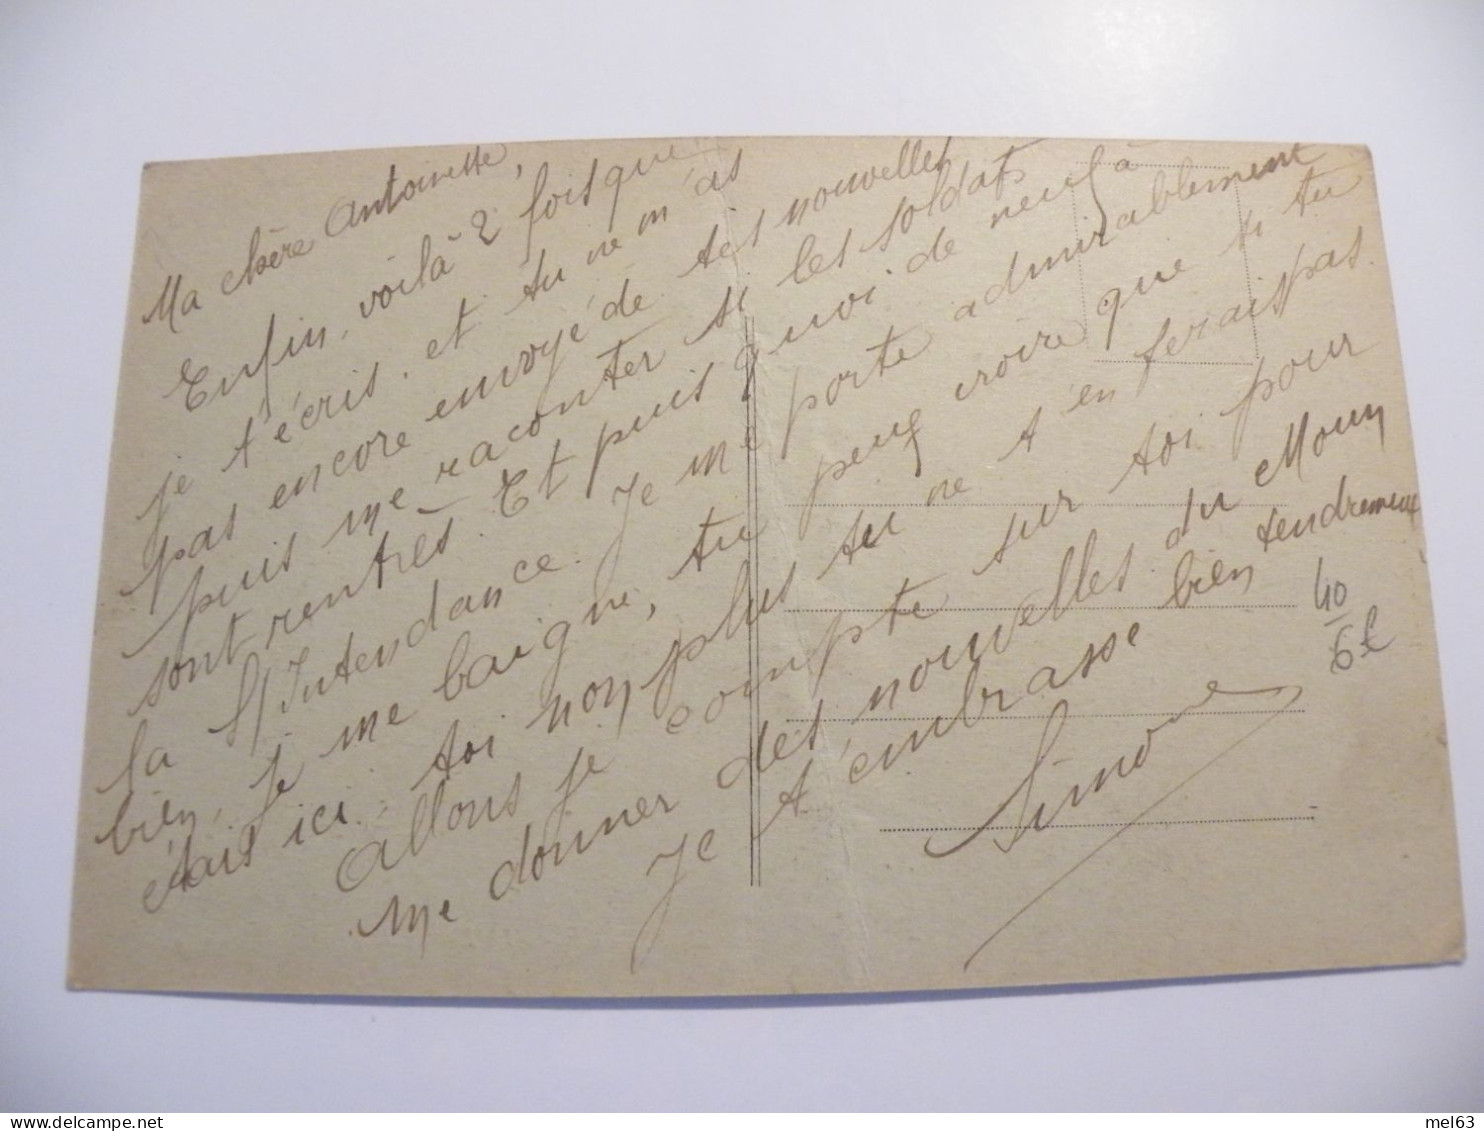 Ma chère Antoinette,
Enfin, voilà 2 fois que
je t'écris. et tu ne m'as
pas encore envoyé de tes nouvelles
puis me raconter si les soldats
sont rentrés. Et puis quoi de neuf à
la S/Intendance. Je me porte admirablement
bien, je me baigne, tu peux croire que si tu
étais ici toi non plus tu ne t'en ferais pas.
Allons je compte sur toi pour
me donner des nouvelles du Mouy
Je t'embrasse bien tendrement
Simone
40
6 €
mel63